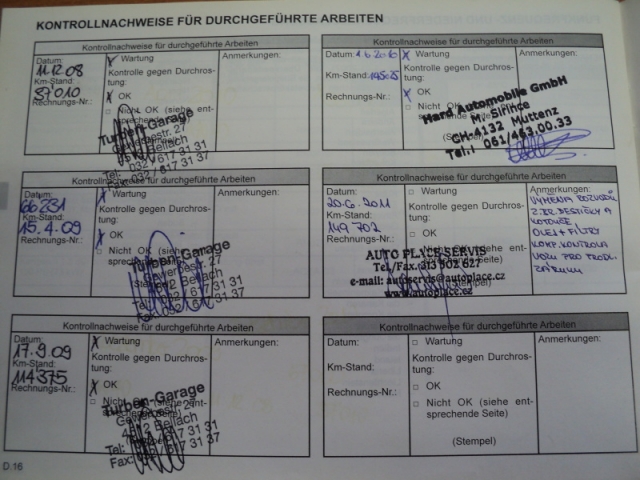 KONTROLLNACHWEISE FÜR DURCHGEFÜHRTE ARBEITEN
Kontrollnachweise für durchgeführte Arbeiten
Datum:
11.12.08
Km-Stand:
87010
Rechnungs-Nr.:
X Wartung
Kontrolle gegen Durchros-
tung:
X OK
□ Nicht OK (siehe ent-
Turben-Garage
Gewerbestr. 27
4512 Bellach
Tel: 032 / 617 31 31
Fax: 032 / 617 31 37
Anmerkungen:
Kontrollnachweise für durchgeführte Arbeiten
Datum:
66231
Km-Stand:
15.4.09
Rechnungs-Nr.:
X Wartung
Kontrolle gegen Durchros-
tung:
X OK
□ Nicht OK (siehe ent-
Turben-Garage
Gewerbestr. 27
4512 Bellach
Tel: 032 / 617 31 31
Fax: 032 / 617 31 37
Anmerkungen:
Kontrollnachweise für durchgeführte Arbeiten
Datum:
17.9.09
Km-Stand:
114375
Rechnungs-Nr.:
X Wartung
Kontrolle gegen Durchros-
tung:
X OK
□ Nicht OK (siehe ent-
Turben-Garage
Gewerbestr. 27
4512 Bellach
Tel: 032 / 617 31 31
Fax: 032 / 617 31 37
Anmerkungen:
D.16
Kontrollnachweise für durchgeführte Arbeiten
Datum:
Km-Stand:
Rechnungs-Nr.:
X Wartung
Kontrolle gegen Durchros-
tung:
X OK
□ Nicht OK (siehe
Hard Automobile GmbH
M. Sirince
CH-4132 Muttenz
Tel.: 061/463.00.33
(Stempel)
Anmerkungen:
Kontrollnachweise für durchgeführte Arbeiten
Datum:
20.6.2011
Km-Stand:
149702
Rechnungs-Nr.:
□ Wartung
Kontrolle gegen Durchros-
tung:
□ OK
□ Nicht OK (siehe ent-
sprechende Seite)
AUTO PLACE SERVIS
Tel./Fax.:313 502 627
e-mail: autoservis@autoplace.cz
www.autoplace.cz
(Stempel)
Anmerkungen:
VÝMĚNA ROZVODŮ
DESTIČKY A
KOTOUČE
OLEJ + FILTRY
KOMP. KONTROLA
VOZU PRO PRODL.
ZÁRUKU
Kontrollnachweise für durchgeführte Arbeiten
Datum:
Km-Stand:
Rechnungs-Nr.:
□ Wartung
Kontrolle gegen Durchros-
tung:
□ OK
□ Nicht OK (siehe ent-
sprechende Seite)
(Stempel)
Anmerkungen: